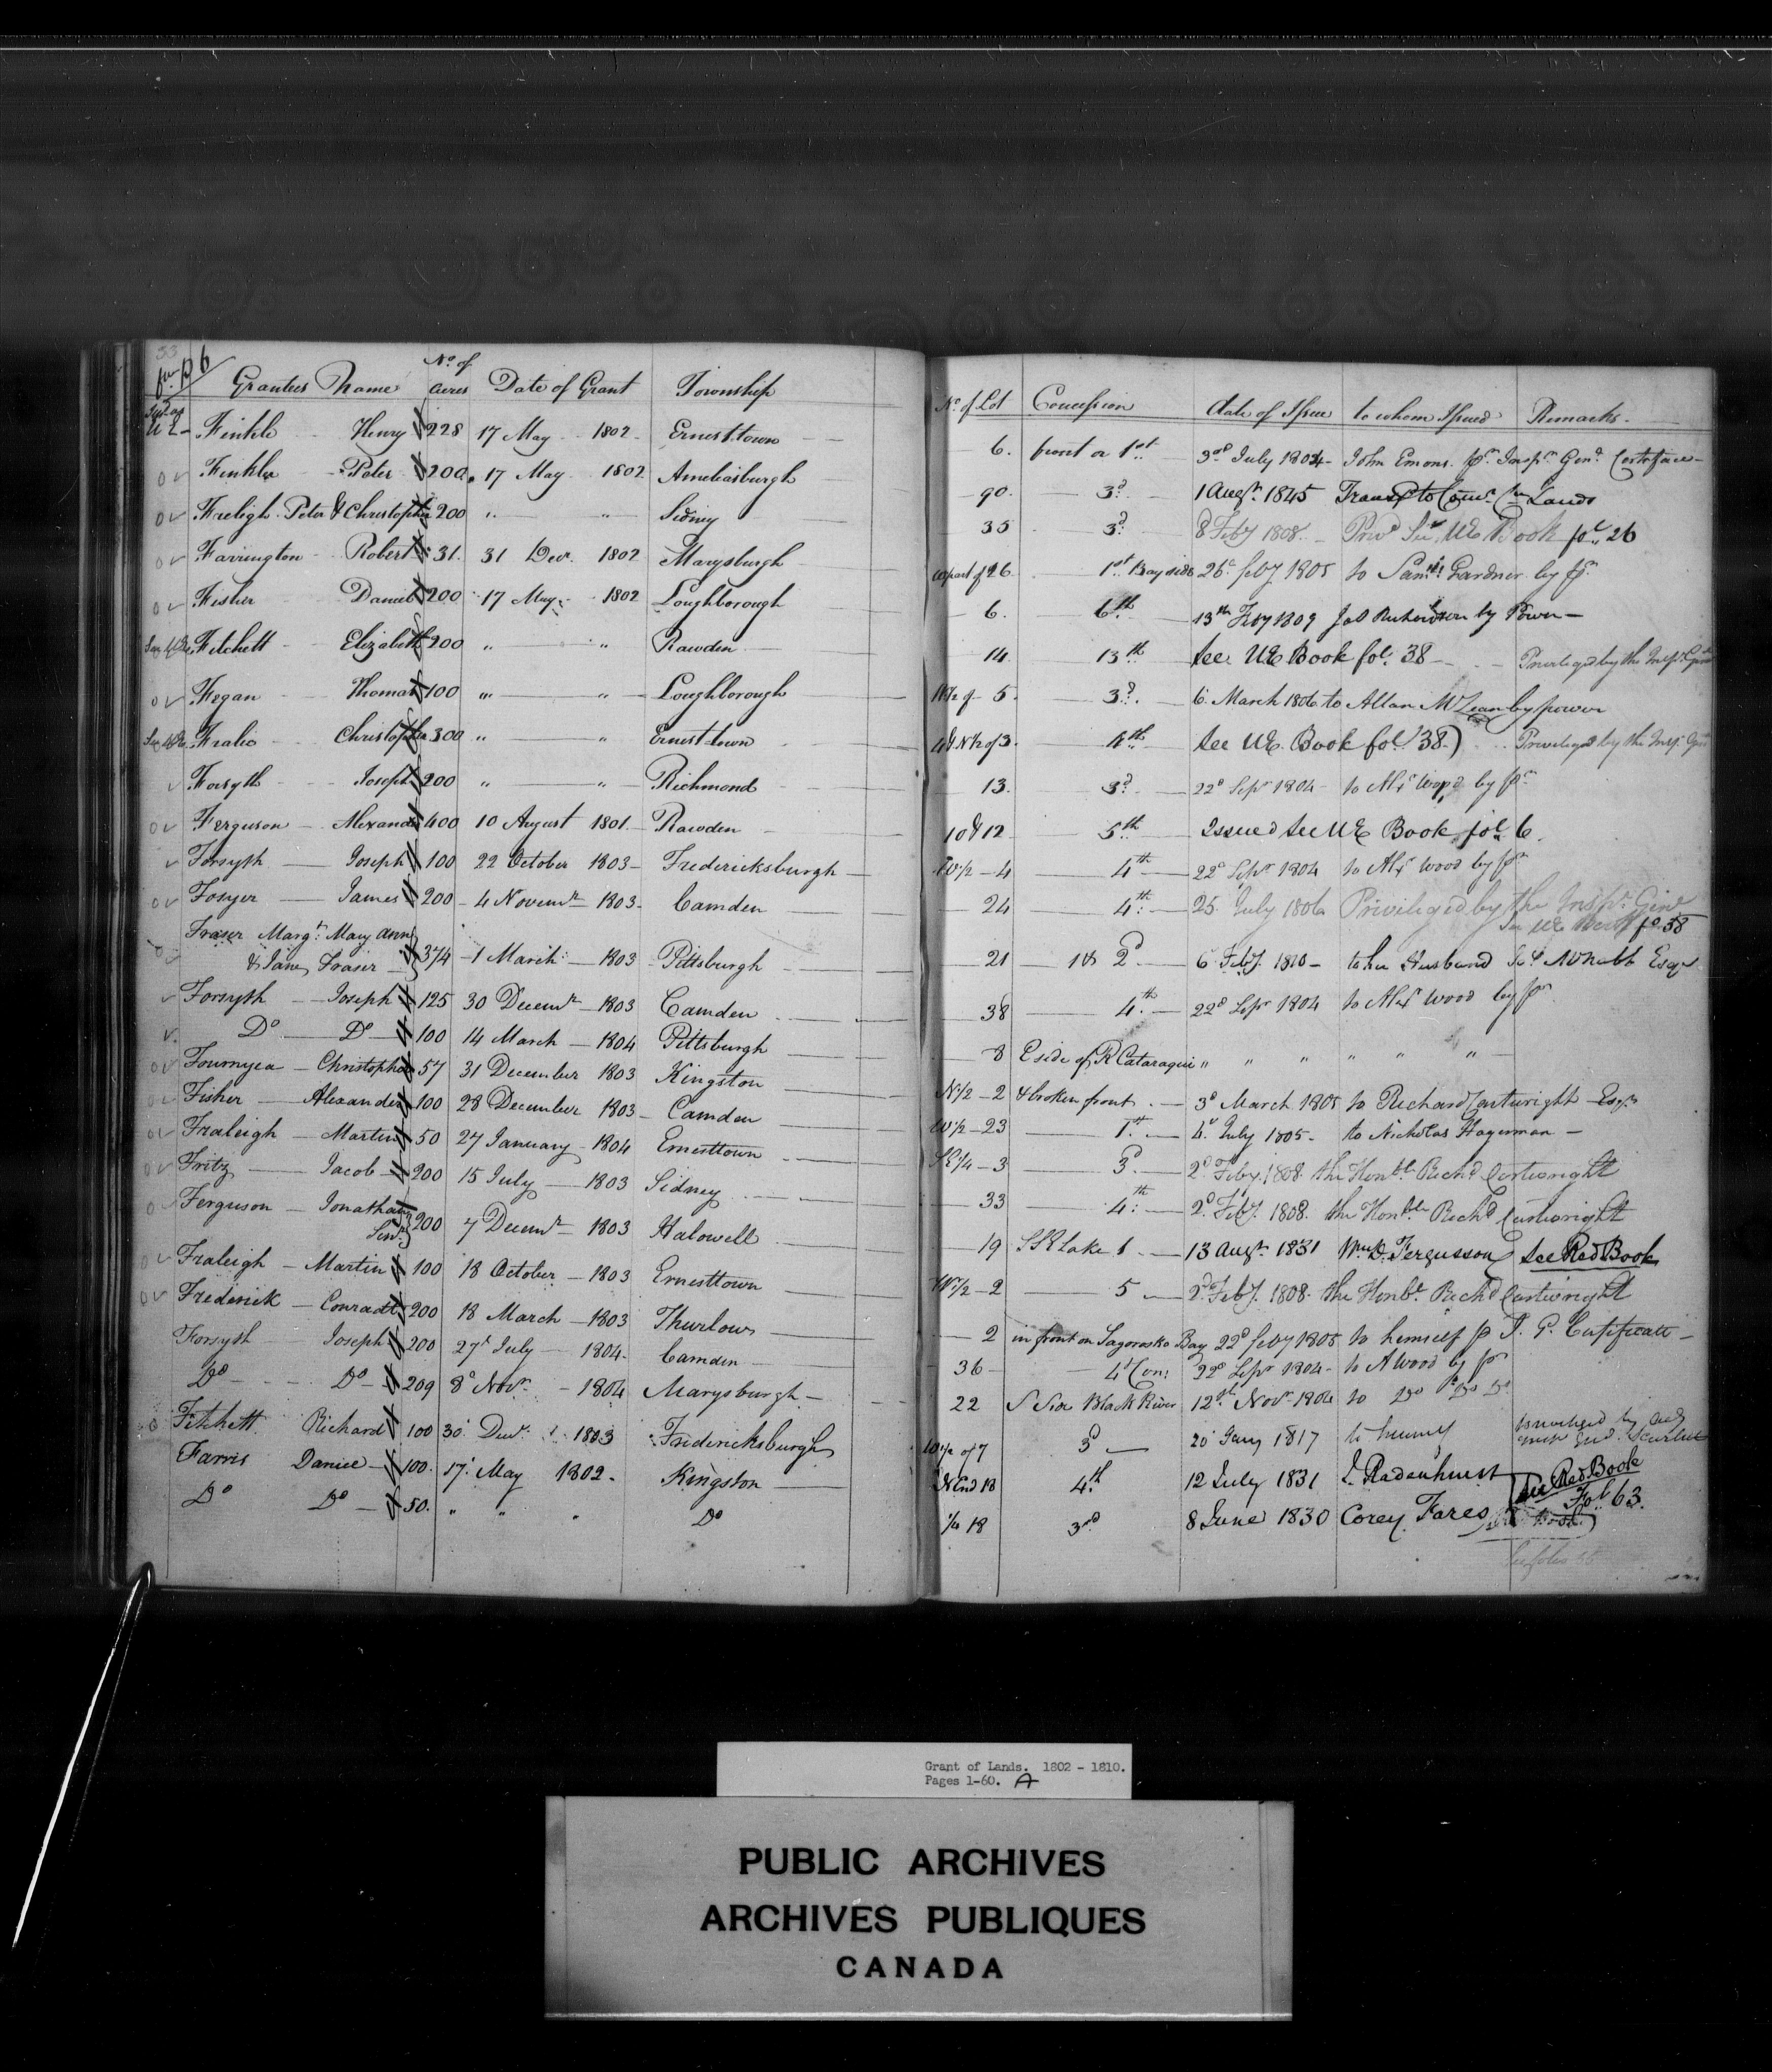 33
for p 6
Grantees Name No. of acres Date of Grant Township No. of Lot Concession date of Issue to whom Issued Remarks
U E Finkle Henry 228 17 May 1802 Ernesttown 6. front or 1st 3rd July 1804 John Emons pr. Inspr. Genl. Certificate
Finkle Peter 200 17 May 1802 Ameliasburgh 90. 3d. 1 Augt. 1845 to Lands
Freligh Peter & Christopher 200 " " Sidney 35 3d. 8 Feby 1808 See UE Book fol. 26
Farrington Robert 31. 31 Decr. 1802 Marysburgh part of 26 1st Bay side 26 feby 1805 to Saml. Gardner by pr.
Fisher Daniel 200 17 May 1802 Loughborough 6. 6th 13th Feby 1809 by Power
Fitchett Elizabeth 200 " " Rawden 14 13th See UE Book fol. 38 Privileged by the Inspr. Genl
Fegan Thomas 100 " " Loughborough W½ of 5. 3d. 6 March 1806 to Allan McLean by power
Fralic Christopher 300 " " Ernest town 4 & N½ of 3. See UE Book fol. 38) Privileged by the Insp. Genl
Forsyth Joseph 200 " " Richmond 13. 3d. 22d Sepr 1804 to Alexr Wood by pr
Ferguson Alexander 400 10 August 1801 Rawden 10 & 12 5th Issued See UE Book fol. 6.
Forsyth Joseph 100 22 October 1803 Fredericksburgh W½ 4 4th 22d Sepr 1804 to Alexr Wood by pr
Fosyer James 200 4 Novemr 1803 Camden 24 4th 25 July 1806 Privileged by the Inspr. Genl
See UE fo. 38
Fraser Margt. Mary Ann
& Jane Fraser 374 1 March 1803 Pittsburgh 21 1 & 2d 6 Feby 1810 to her Husband McNabb Esqr
Forsyth Joseph 125 30 Decemr 1803 Camden 38 4th 22d Sepr 1804 to Alexr Wood by pr
Do Do 100 14 March 1804 Pittsburgh 8 E side of R Cataraqui " " " " " "
Fournyea Christopher 57 31 December 1803 Kingston N½ 2 & broken front 3d March 1805 to Richard Cartwright Esqr
Fisher Alexander 100 28 December 1803 Camden W½ 23 1st 4 July 1805 to Nicholas Hagerman
Fraleigh Martin 50 27 January 1804 Ernesttown SE¼ 3 3d 2d Feby 1808 the Honble Richd Cartwright
Fritz Jacob 200 15 July 1803 Sidney 33 4th 2d Feby 1808 the Honble Richd Cartwright
Ferguson Jonathan
Senr. 200 7 Decemr 1803 Halowell 19 Lake 13 Augt. 1831 Wm. D. Fergusson See Red Book
Fraleigh Martin 100 18 October 1803 Ernesttown W½ 2 5 2d Feby 1808 the Honbl. Richd Cartwright
Frederick Conradt 200 18 March 1803 Thurlow 2 in front on Sagonasko Bay 22d feby 1805 to himself p Certificate
Forsyth Joseph 200 27 July 1804 Camden 36 4 Con: 22d Sepr 1804 to A Wood by pr
Do Do 209 8 Novr. 1804 Marysburgh 22 S Side Black River 12th Novr 1804 to Do Do
Fitchett Richard 100 30 Decr. 1803 Fredericksburgh W½ of 7 3d 20 Jany 1817
Farris Daniel 100. 17 May 1802 Kingston N End 18 4th 12 July 1831 Radenhurst See Red Book
Fol 63.
Do Do 50. " " " Do ¼ 18 3rd 8 June 1830 Corey Fares
Grant of Lands. 1802 - 1810.
Pages 1-60. A
PUBLIC ARCHIVES
ARCHIVES PUBLIQUES
CANADA